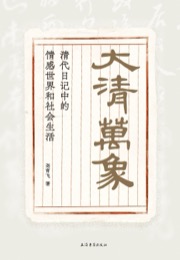 大清萬象
清代日记中的
情感世界和社会生活